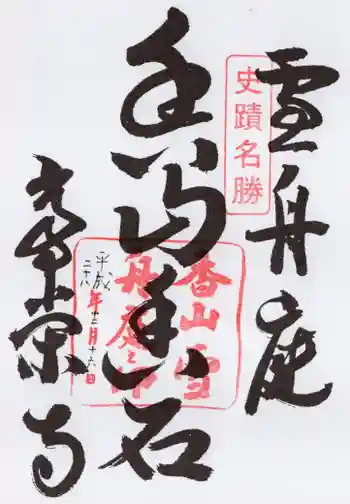 雪舟庭
史蹟名勝
常栄寺
香山雪
舟庭之印
平成二十八年十二月十六日